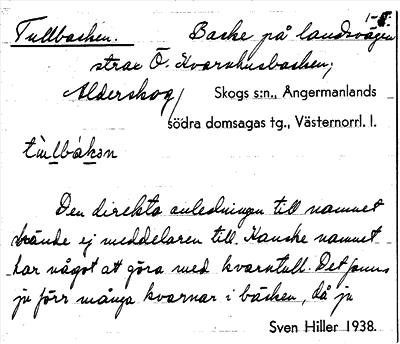 1-5.
Tullbacken. Backe på landsvägen
strax Ö. Kvarnhusbacken;
Alderskog/ Skogs s:n., Ångermanlands
södra domsagas tg., Västernorrl. l.
Den direkta anledningen till namnet
kände ej meddelaren till. Kanske namnet
har något att göra med kvarntull. Det fanns
ju förr många kvarnar i bäcken, då ju
Sven Hiller 1938.